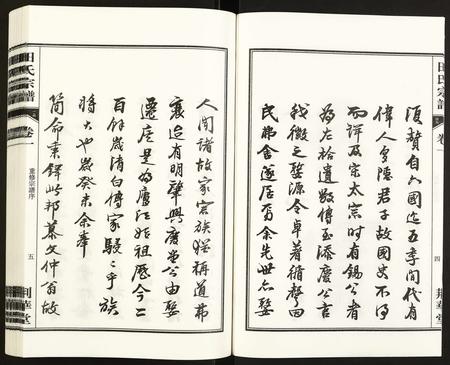 田氏宗譜
卷一
四
荆華堂
須贊自六國迄五季間代有
偉人多隱君子故國史不得
而詳及宋太宗時有錫公者
為左拾遺數傳至添慶公言
我徽之婺源令卓著循聲因
民弗舍遂居焉余先世亦婺
人間諸故家宦族猶稱道弗
衰迨有明肇興慶弟公由婺
遷虎是為廬江始祖歷今二
百餘歲清白傳家駸乎族
將大也歲癸未余奉
簡命秉鐸此邦慕文仲首故
田氏宗譜
卷一
重修宗譜序
五
荆華堂